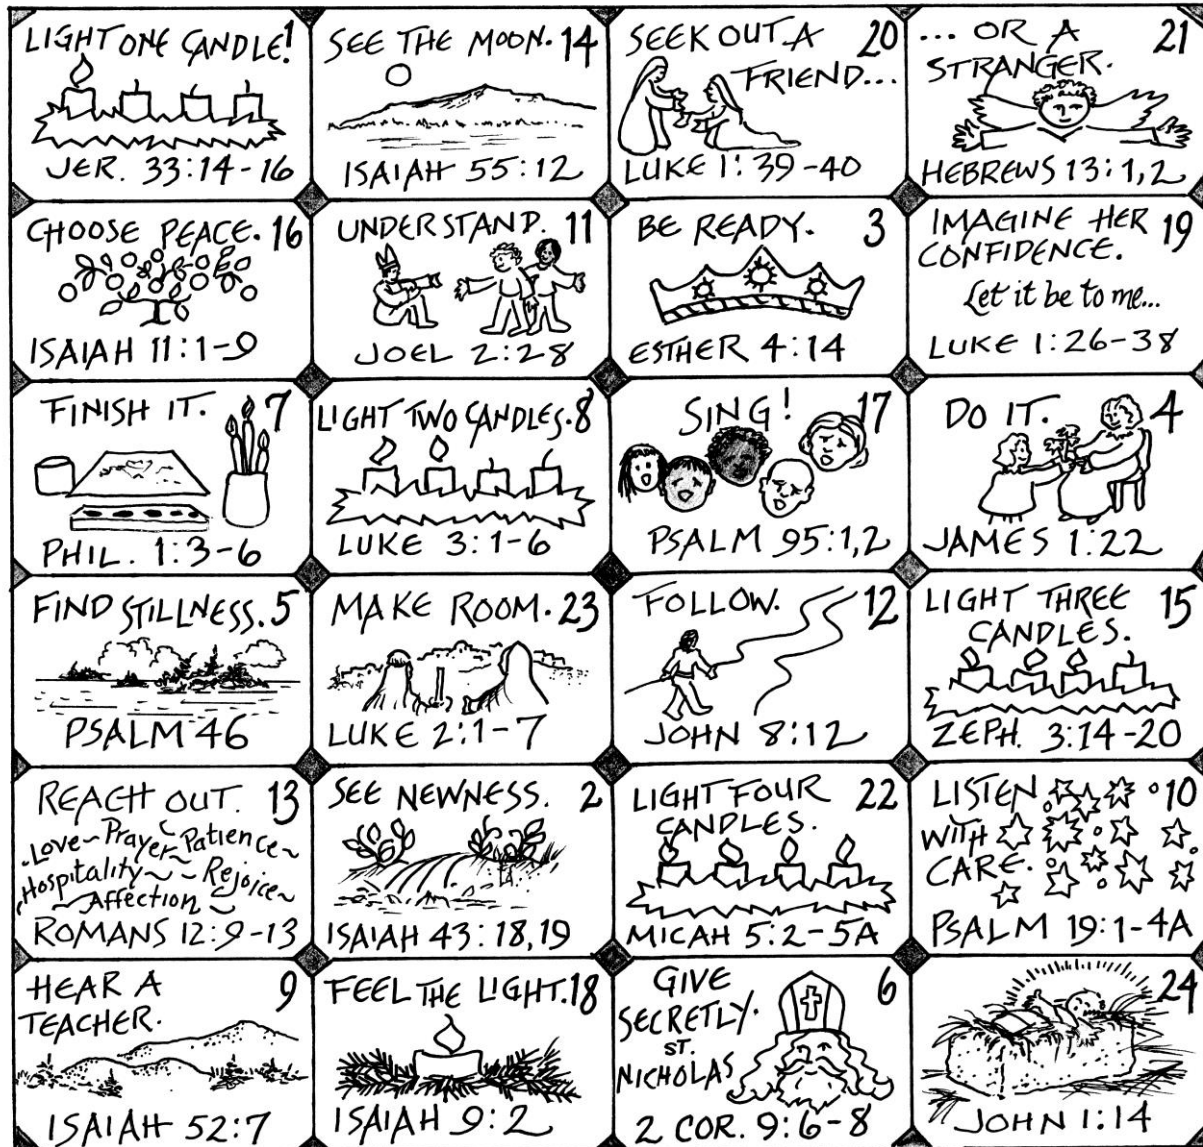 LIGHT ONE CANDLE! 1
JER. 33:14-16
SEE THE MOON. 14
ISAIAH 55:12
SEEK OUT A 20
FRIEND...
LUKE 1:39-40
... OR A 21
STRANGER.
HEBREWS 13:1,2
CHOOSE PEACE. 16
ISAIAH 11:1-9
UNDERSTAND. 11
JOEL 2:28
BE READY. 3
ESTHER 4:14
IMAGINE HER 19
CONFIDENCE.
Let it be to me...
LUKE 1:26-38
FINISH IT. 7
PHIL. 1:3-6
LIGHT TWO CANDLES. 8
LUKE 3:1-6
SING! 17
PSALM 95:1,2
DO IT. 4
JAMES 1:22
FIND STILLNESS. 5
PSALM 46
MAKE ROOM. 23
LUKE 2:1-7
FOLLOW. 12
JOHN 8:12
LIGHT THREE 15
CANDLES.
ZEPH. 3:14-20
REACH OUT. 13
Love~Prayer~Patience~
Hospitality~ ~Rejoice~
~Affection~
ROMANS 12:9-13
SEE NEWNESS. 2
ISAIAH 43:18,19
LIGHT FOUR 22
CANDLES.
MICAH 5:2-5A
LISTEN 10
WITH
CARE.
PSALM 19:1-4A
HEAR A 9
TEACHER.
ISAIAH 52:7
FEEL THE LIGHT. 18
ISAIAH 9:2
GIVE 6
SECRETLY.
ST.
NICHOLAS
2 COR. 9:6-8
24
JOHN 1:14